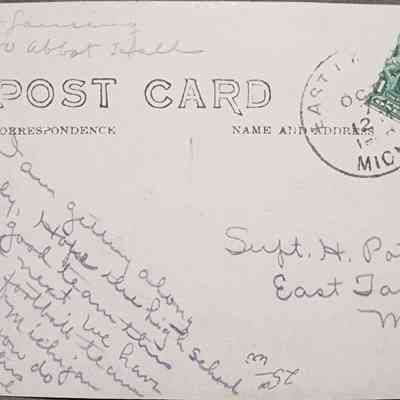 Lansing
Abbot Hall
POST CARD
CORRESPONDENCE
NAME AND ADDRESS
EAST
OC
12
MICH
I am getting along
Hope the high school
good team this
next. We have
football team
Michigan
you do
Supt. H. Pa
East Ta
M
25